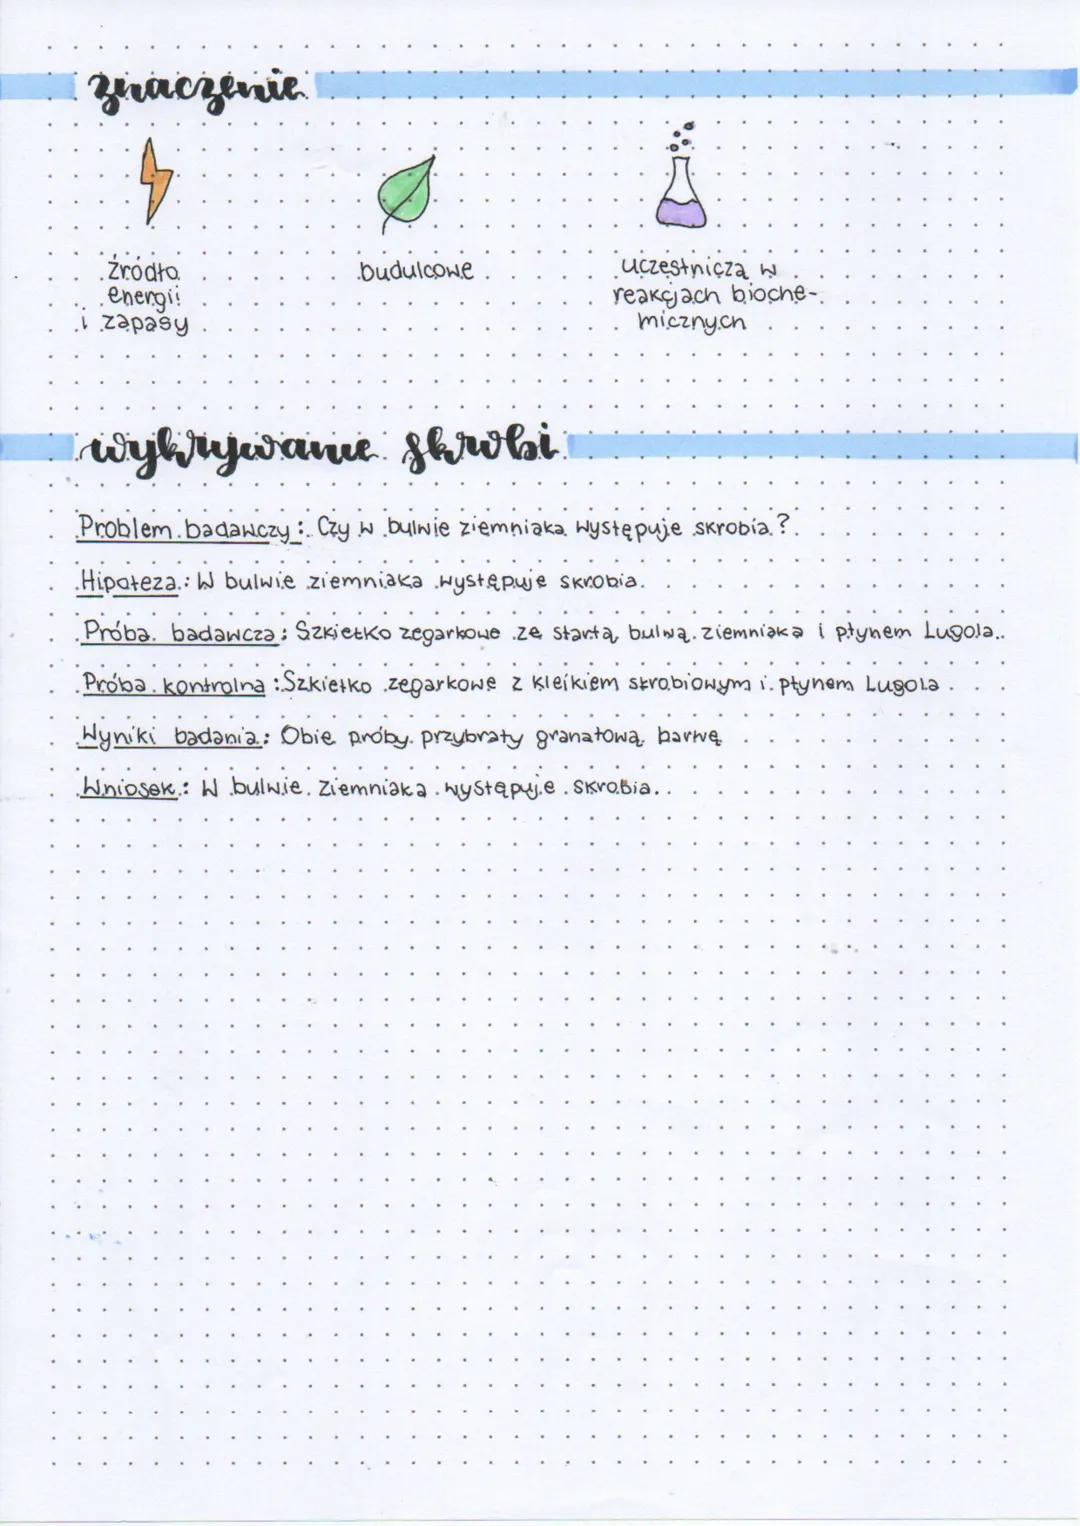 znaczenie
źródło
energii
i zapasy
budulcowe
uczestniczą w
reakcjach bioche-
micznych
wykrywanie skrobi
Problem badawczy: Czy w bulwie ziemniaka występuje skrobia?
Hipoteza: W bulwie ziemniaka występuje skrobia.
Próba badawcza: Szkiełko zegarkowe ze startą bulwą ziemniaka i płynem Lugola.
Próba kontrolna: Szkiełko zegarkowe z kleikiem skrobiowym i płynem Lugola
Wyniki badania: Obie próby przybrały granatową barwę
Wniosek: W bulwie ziemniaka występuje skrobia.